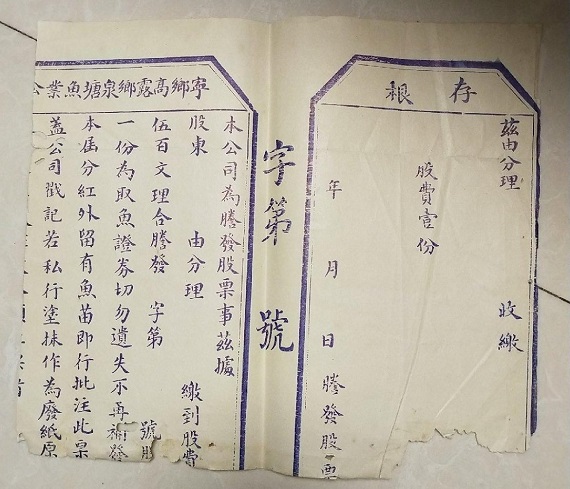 存根
茲由分理 收繳
股費壹份
年 月 日 謄發股票
字第 號
寧鄉高露鄉泉塘魚業公
本公司為謄發股票事茲據
股東 由分理 繳到股費
伍百文理合謄發 字第 號股
一份為取魚證券切勿遺失不再補發
本届分紅外留有魚苗即行批注此票
蓋公司戳記若私行塗抹作為廢紙原